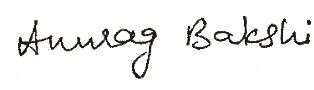 Anurag Bakshi